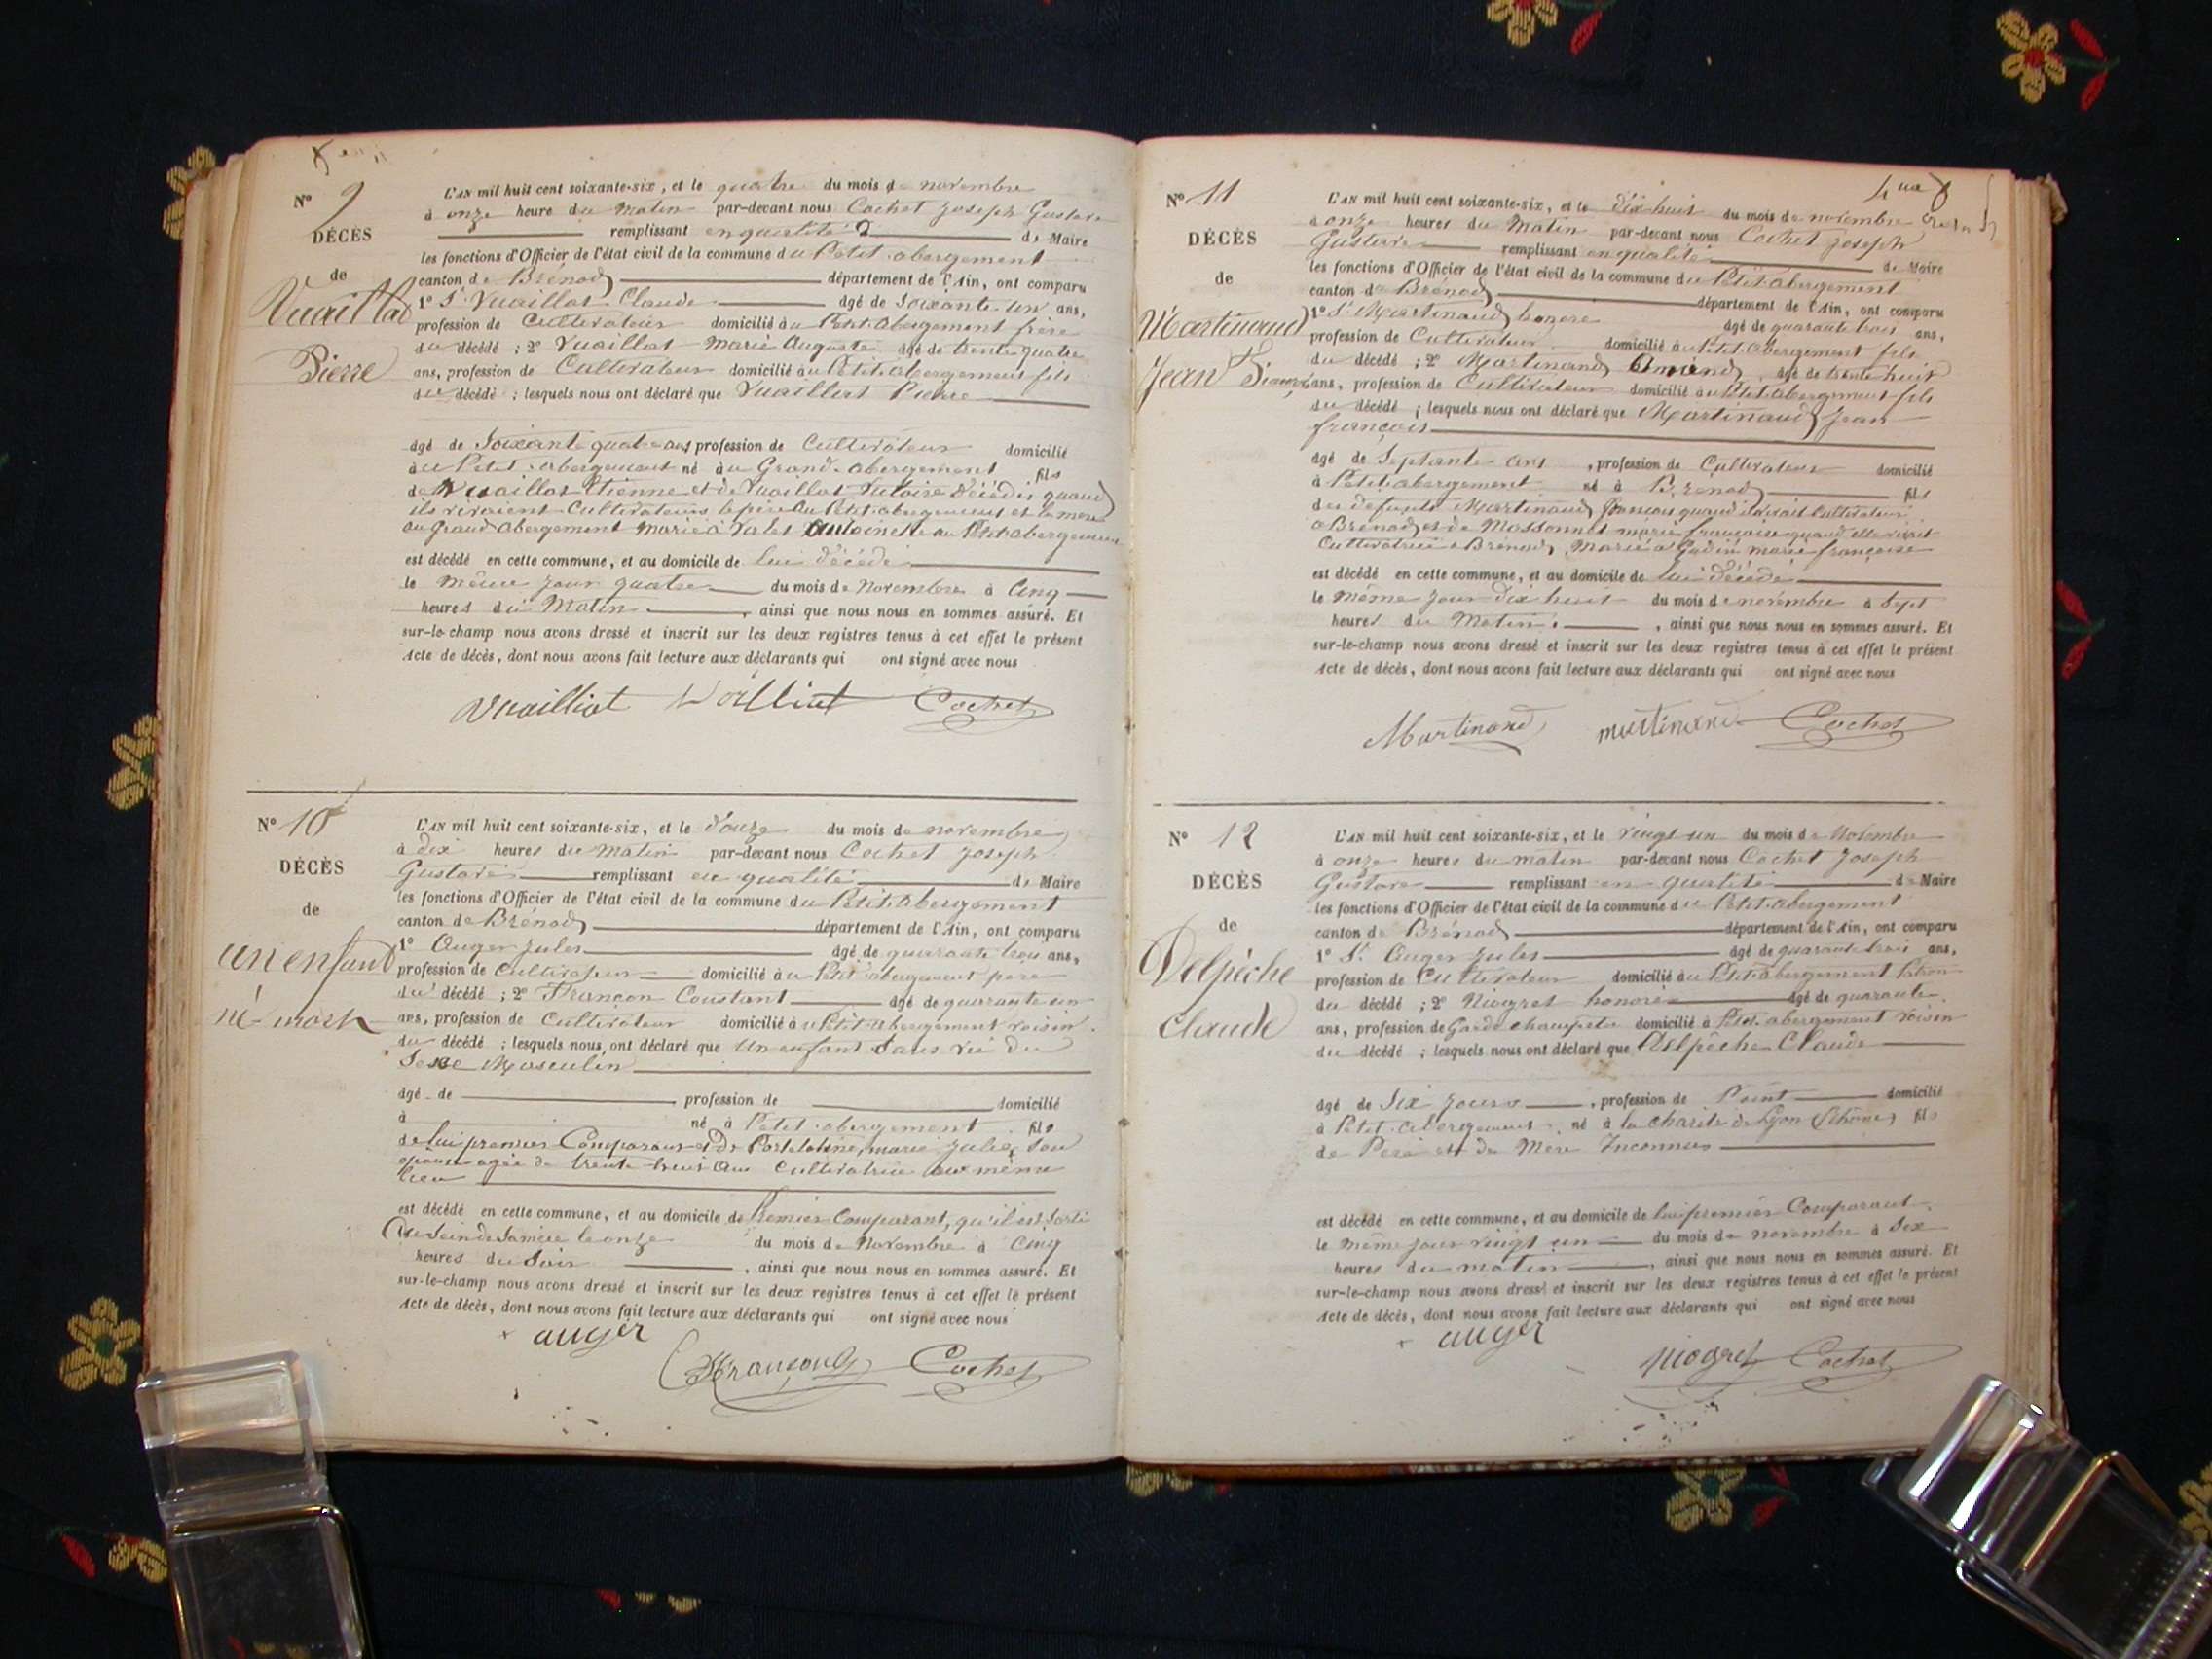 N° 9
DÉCÈS
de
Vuaillat
Pierre
L'AN mil huit cent soixante-six, et le quatre du mois de novembre
à onze heure du Matin par-devant nous Cochet Joseph Gustave
remplissant en qualité de Maire
les fonctions d'Officier de l'état civil de la commune du Petit-abergement
canton de Brénod département de l'Ain, ont comparu
1° S. Vuaillat Claude âgé de Soixante-un ans,
profession de Cultivateur domicilié au Petit-Abergement frère
du décédé ; 2° Vuaillat Marie Auguste âgé de trente quatre
ans, profession de Cultivateur domicilié au Petit-abergement fils
du décédé ; lesquels nous ont déclaré que Vuaillat Pierre
âgé de Soixante quatre ans profession de Cultivateur domicilié
au Petit-abergement né au Grand-abergement fils
de Vuaillat Etienne et de Vuaillat décédés quand
ils vivaient Cultivateurs le père au Petit-abergement et la mère
au Grand abergement marié à Antoinette au Petit abergement
est décédé en cette commune, et au domicile de lui décédé
le même jour quatre du mois de Novembre à Cinq
heures du Matin , ainsi que nous nous en sommes assuré. Et
sur-le-champ nous avons dressé et inscrit sur les deux registres tenus à cet effet le présent
Acte de décès, dont nous avons fait lecture aux déclarants qui ont signé avec nous
Vuailliat Vuilliat Cochet
N° 10
DÉCÈS
de
un enfant
né-mort
L'AN mil huit cent soixante-six, et le douze du mois de novembre
à dix heures du matin par-devant nous Cochet Joseph
Gustave remplissant en qualité de Maire
les fonctions d'Officier de l'état civil de la commune du Petit-Abergement
canton de Brénod département de l'Ain, ont comparu
1° Auger Jules âgé de quarante trois ans,
profession de Cultivateur domicilié au Petit abergement père
du décédé ; 2° Françon Constant âgé de quarante un
ans, profession de Cultivateur domicilié au Petit-abergement voisin
du décédé ; lesquels nous ont déclaré que Un enfant Sans vie du
Sexe Masculin
âgé de profession de domicilié
à né à Petit-abergement fils
de lui premier Comparant et de marie Julie, Son
épouse agée de trente ans cultivatrice au même
lieu
est décédé en cette commune, et au domicile de Premier Comparant, qu'il est sorti
du Sein de Sa mère le onze du mois de Novembre à Cinq
heures du Soir , ainsi que nous nous en sommes assuré. Et
sur-le-champ nous avons dressé et inscrit sur les deux registres tenus à cet effet le présent
Acte de décès, dont nous avons fait lecture aux déclarants qui ont signé avec nous
x auger
Françon Cochet
N° 11
DÉCÈS
de
Martinand
Jean
L'AN mil huit cent soixante-six, et le dix huit du mois de novembre
à onze heures du Matin par-devant nous Cochet Joseph
Gustave remplissant en qualité de Maire
les fonctions d'Officier de l'état civil de la commune du Petit-abergement
canton de Brénod département de l'Ain, ont comparu
1° S. Martinand honoré âgé de quarante trois ans,
profession de Cultivateur domicilié au Petit-abergement fils
du décédé ; 2° Martinand Armand, âgé de trente huit
ans, profession de Cultivateur domicilié au Petit-abergement fils
du décédé ; lesquels nous ont déclaré que Martinand Jean
françois
âgé de Septante ans , profession de Cultivateur domicilié
à Petit-abergement né à Brénod fils
de défunts Martinand françois quand il vivait Cultivateur
à Brénod et de Massonnet marie françoise quand elle vivait
Cultivatrice à Brénod, Marié à marie françoise
est décédé en cette commune, et au domicile de lui décédé
le même jour dix huit du mois de novembre à Sept
heures du Matin , ainsi que nous nous en sommes assuré. Et
sur-le-champ nous avons dressé et inscrit sur les deux registres tenus à cet effet le présent
Acte de décès, dont nous avons fait lecture aux déclarants qui ont signé avec nous
Martinand martinand Cochet
N° 12
DÉCÈS
de
Delpèche
Claude
L'AN mil huit cent soixante-six, et le vingt un du mois de Novembre
à onze heures du matin par-devant nous Cochet Joseph
Gustave remplissant en qualité de Maire
les fonctions d'Officier de l'état civil de la commune du Petit-abergement
canton de Brénod département de l'Ain, ont comparu
1° S. Auger Jules âgé de quarante trois ans,
profession de Cultivateur domicilié au Petit-abergement Patron
du décédé ; 2° Niogret honoré âgé de quarante
ans, profession de Garde champetre domicilié à Petit-abergement voisin
du décédé ; lesquels nous ont déclaré que Delpèche Claude
âgé de Six Jours , profession de Point domicilié
à Petit-abergement, né à la charité de Lyon (Rhône) fils
de Père et de Mère Inconnus
est décédé en cette commune, et au domicile de lui premier Comparant
le même jour vingt un du mois de novembre à Six
heures du matin , ainsi que nous nous en sommes assuré. Et
sur-le-champ nous avons dressé et inscrit sur les deux registres tenus à cet effet le présent
Acte de décès, dont nous avons fait lecture aux déclarants qui ont signé avec nous
x auger
Niogret Cochet